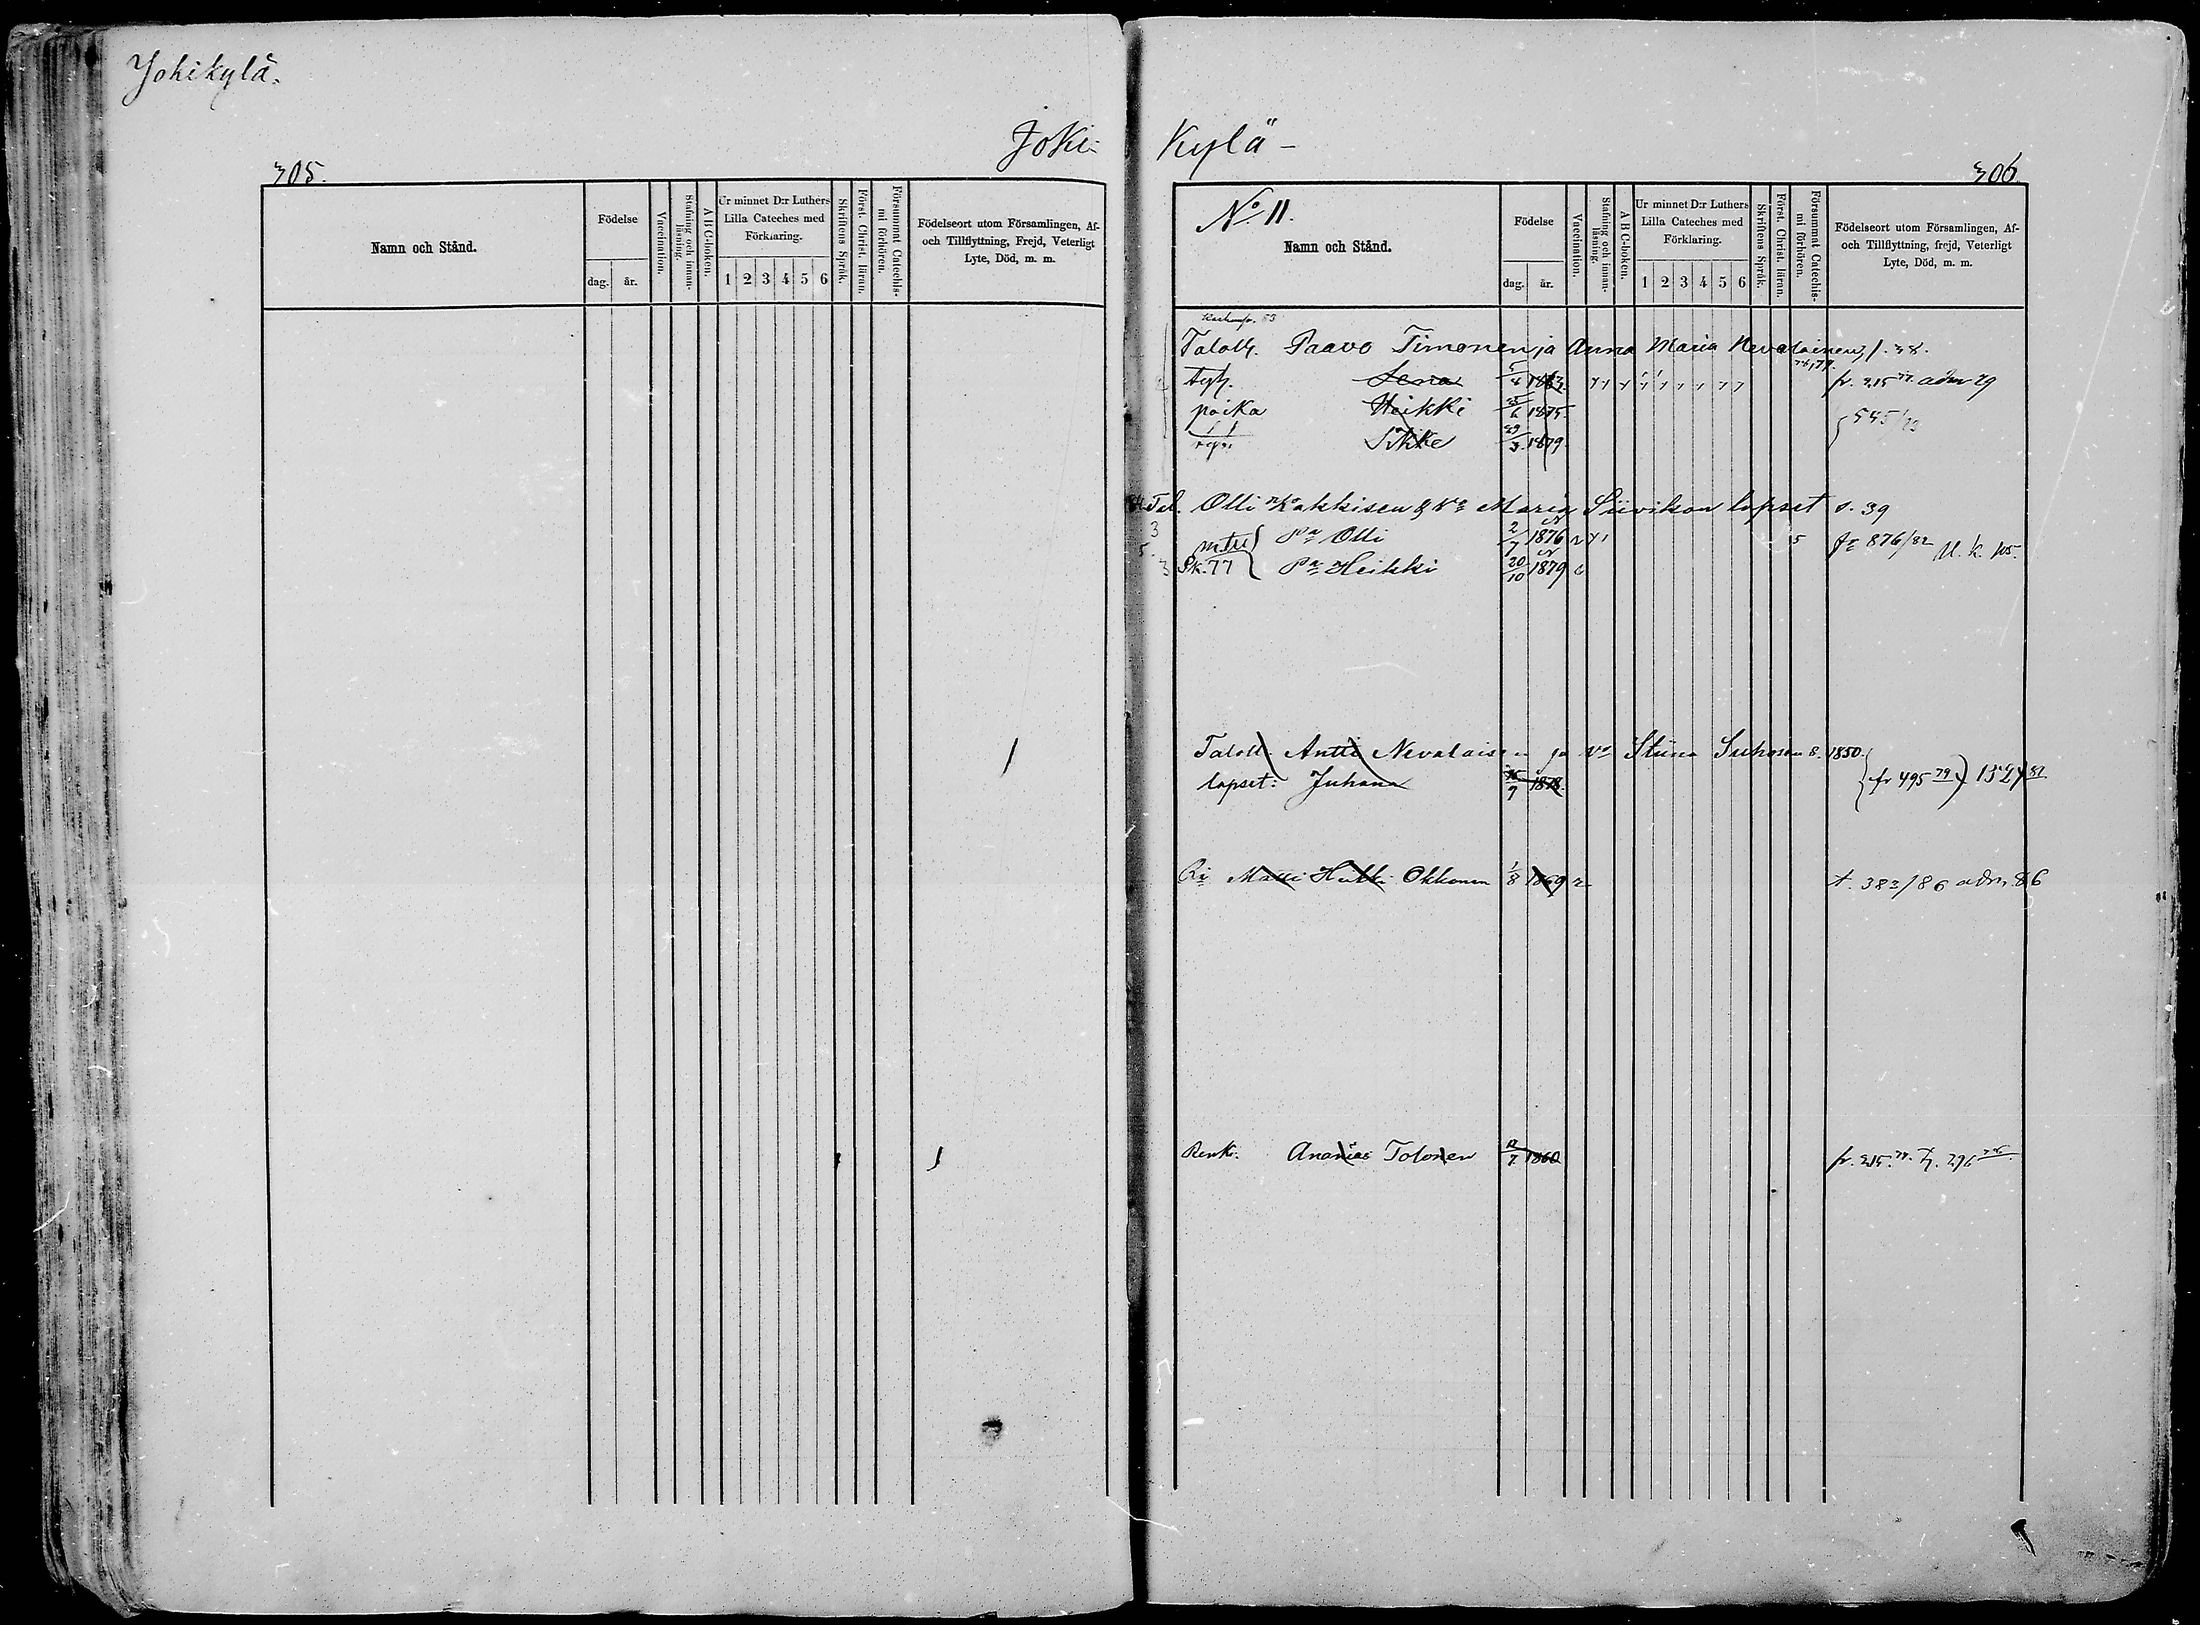 Jokikylä.
Joki-
Kylä-
305.
306
Namn och Stånd.
Födelse
dag.
år.
Vaccination.
Stafning och innanläsning.
A B C-boken.
Ur minnet D:r Luthers Lilla Cateches med Förklaring.
1 2 3 4 5 6
Skriftens Språk.
Först. Christ. läran.
Försummat Catechismi förhören.
Födelseort utom Församlingen, Af- och Tillflyttning, Frejd, Veterligt Lyte, Död, m. m.
No 11.
Namn och Stånd.
Födelse
dag.
år.
Vaccination.
Stafning och innanläsning.
A B C-boken.
Ur minnet D:r Luthers Lilla Cateches med Förklaring.
1 2 3 4 5 6
Skriftens Språk.
Först. Christ. läran.
Försummat Catechismi förhören.
Födelseort utom Församlingen, Af- och Tillflyttning, frejd, Veterligt Lyte, Död, m. m.
Paavo Timonen ja Anna Maria Nevalainen
tyt. Lena 5/4 fr. 215 adm 79
poika Heikki 25/6 1875
Sikke 29/3 1879
Tal. Olli Kakkisen & Vo Maria Siivikon lapset s. 39
Pa Olli 2/7 1876 5 fr 876/82
Sk. 77 Pa Heikki 20/10 1879
Antti Nevalaisen ja vo Stiina Suhosen s. 1850.
lapset: Juhana 1878 fr 495 79
Ri Matti Heikki Okkonen 1/8 1869 t. 383/86 adm. 86
Renk. Ananias Tolonen 1860 fr. 215.